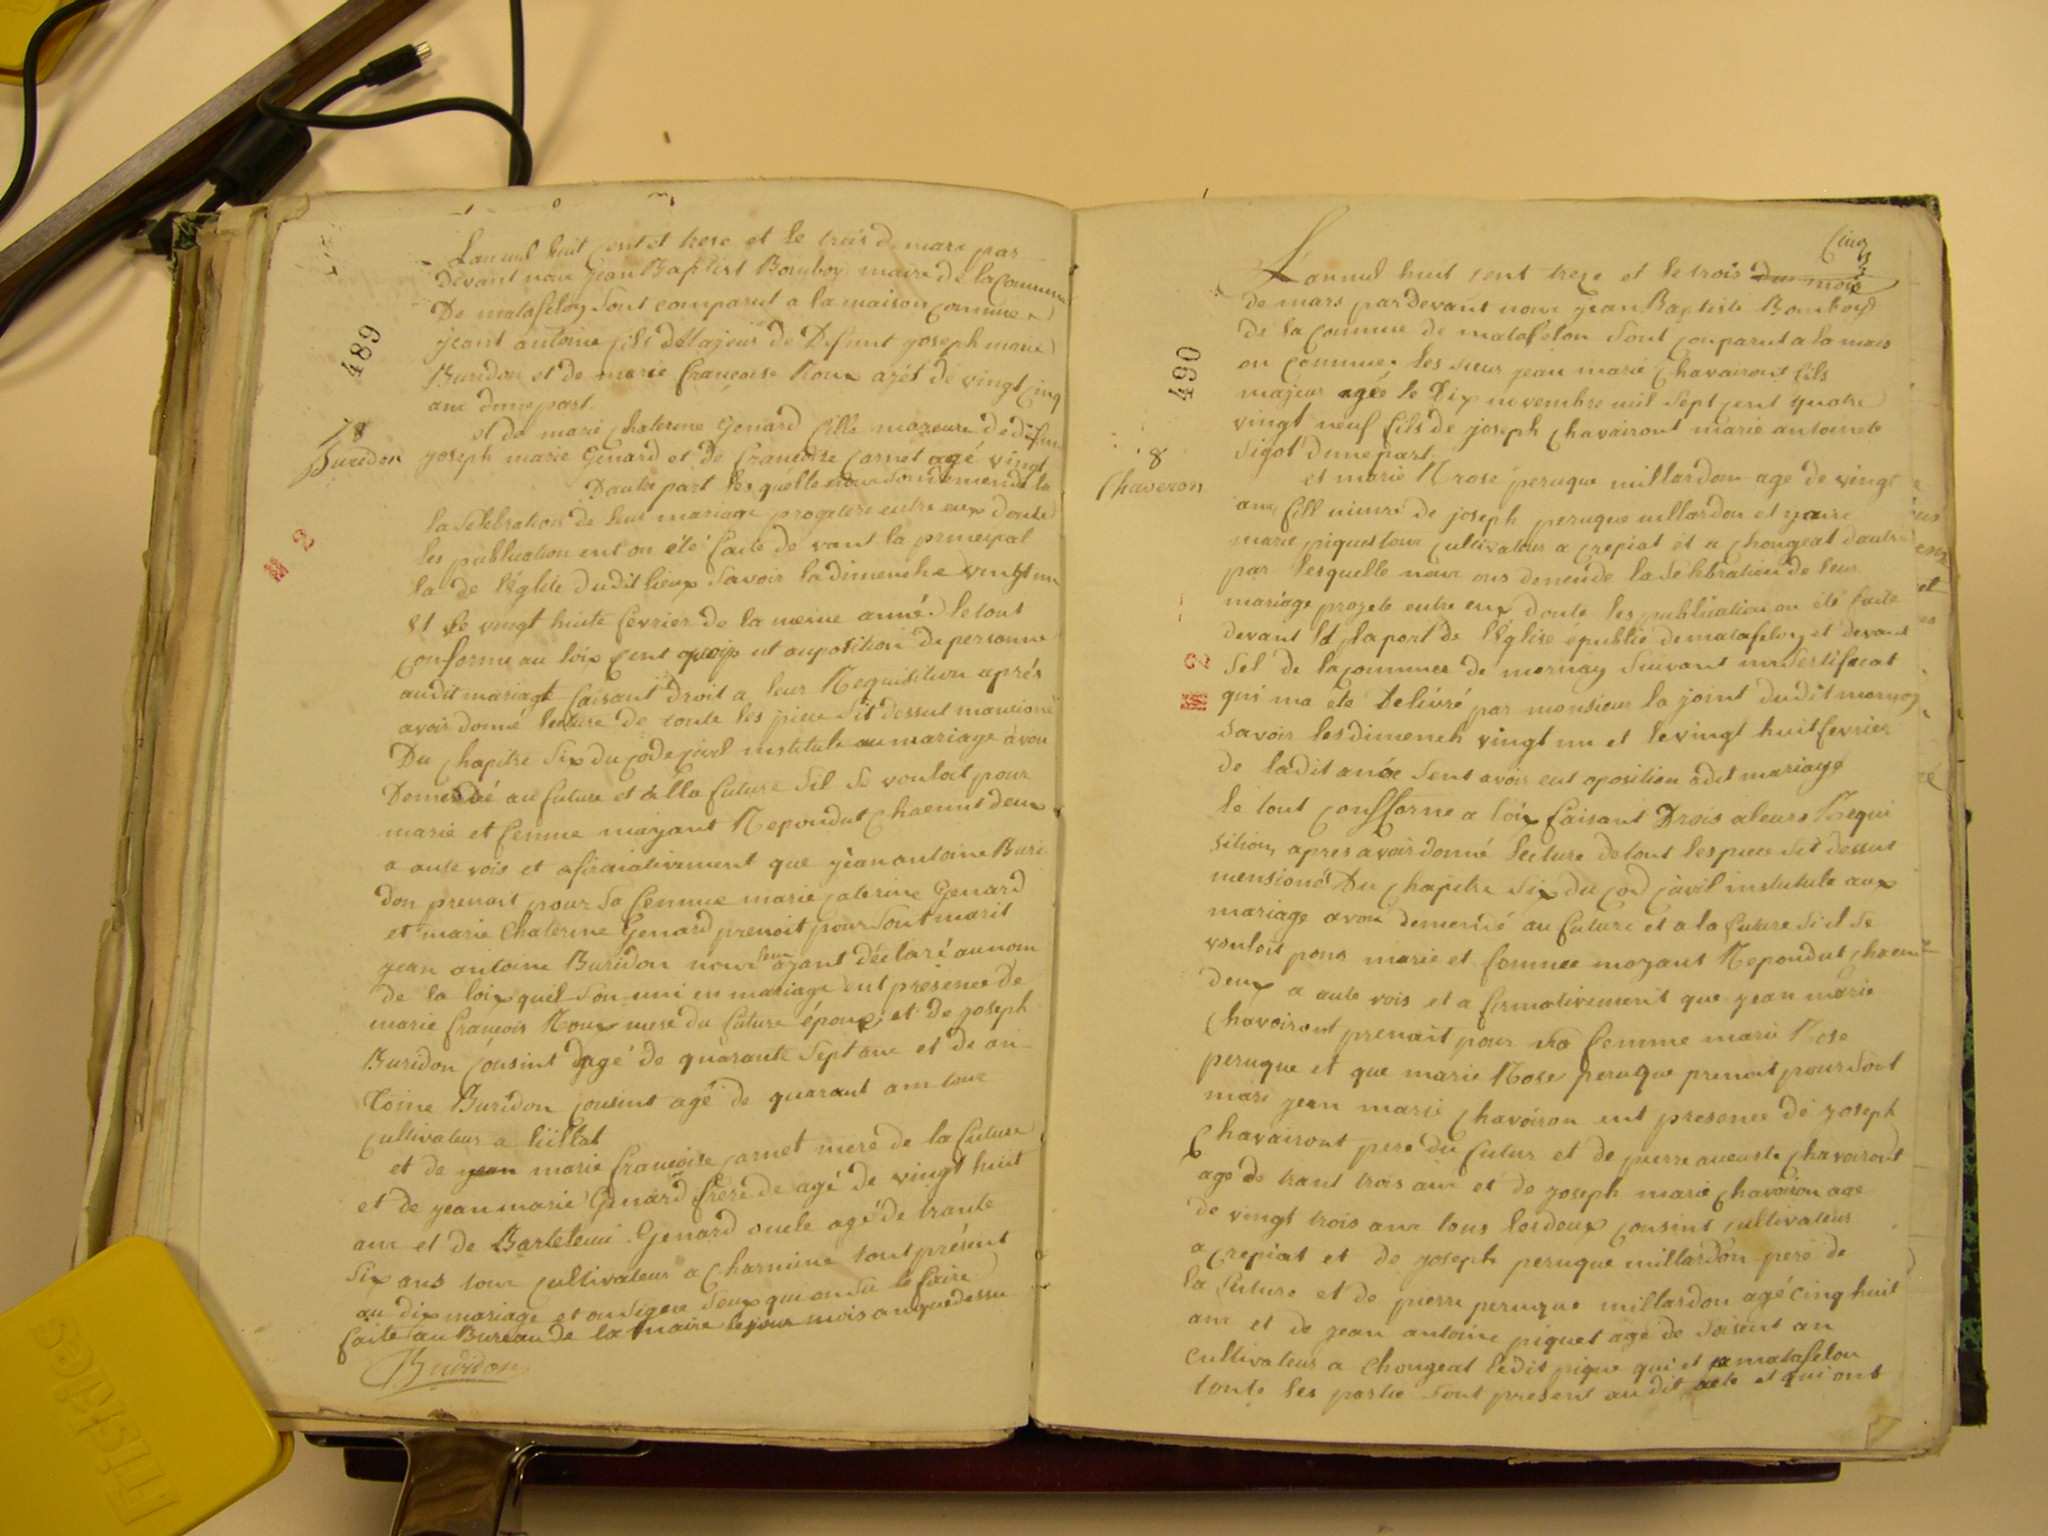 Lanmil huit cent et treze et le trois de mars par
devant nous jean Baptist Bomboy maire de la commune
De matafeloy Sont comparut a la maison commune
jeant antoine fils Majeur de Defunt joseph marie
Buridon et de marie francoise Roux agét de vingt cinq
ans dunepart
et de marie chaterine Genard fille mazeure de defun
joseph marie Genard et de francoise Carnet agé vingt
Dautre part lesquelle nous Son demende la
la Selebration de leur mariage progetere entre eux donte
les publication ent on été faite de vant la principal
la de léglise dudit lieux Savoir la dimenche vingt un
et le vingt huite fevrier de la meme anné le tout
conforme au loix cent quoip ut auposition de personne
audit mariage faisant droit a leur Requisition aprés
avoir donné lecture de toute les piece Sit dessut mancioné
Du chapitre Six du code civil institule au mariage avon
Demendé au future et á lla future Sil Se vouloit pour
marie et femme mayant Repondut chacunt deux
a aute vois et afirmativement que jean antoine Buri
don prenait pour Sa femme marie caterine Genard
et marie Chaterine Genard prenoit pour Sont marit
jean antoine Buridon nous leur ayant déclaré aunom
de la loix quil Son uni en mariage ent presence de
marie francois Roux mere du future époux et de joseph
Buridon cousint agé de quarante Sept ans et de an
toine Buridon cousint agé de quarant ans tous
cultivateur a
et de jean marie francoise carnet mere de la future
et de jean marie Genard frere de agé de vingt huit
ans et de Bartelemi Genard oncle agé de trante
Six ans tous cultivateur a charmine tout présent
au dix mariage et on Signe Seux qui on Su le faire
faite au Bureau de la maire le jour mois an quedessu
Buridon
489
8
Buridon
M 2
Cinq
L'anmil huit cent treze et le trois du mois
de mars pardevant nous jean Baptiste Bomboy
de la commune de matafelon Sont comparut a la mais
on commune les sieur jean marie chavairont fils
majeur agée le Dix novembre mil Sept cent quatre
vingt neuf fils de joseph chavairont marie antoinete
Sigot dunepart
et marie Rose peruque millardon age de vingt
ans fill mieure de joseph peruque millardon et
marie piquet tous cultivateur a crepiat et a chougeat dautre
par lesquelle nous ons demende la Selebration de leur
mariage progete entre eux donte les publication on été faite
devant la porte de léglise épublié de matafeloy et devant
Sel de la commune de mornay Suivant un Sertificat
qui ma été Delivré par monsieur la joint dudit mornay
Savoir les dimench vingt un et le vingt huit fevrier
de ladit anée Sent avoir eut oposition adit mariage
le tout confforme a loix faisant Drois a leurs Requi
sition, apres avoir donné lecture de tout les piece Sit dessut
mensioné Du chapitre Six du cod civil institule aux
mariage avon demendé au future et a la future Si il Se
vouloit pour marie et femme mayant Repondut chacun
deux a aute vois et a firmativement que jean marie
chavairont prenait pour sa femme marie Rose
peruque et que marie Rose peruque prenoit pour Sont
mari jean marie chavoiron ent presence de joseph
chavairont pere du futur et de pierre aueuste chavairont
age de trant trois ans et de joseph marie chavoiron age
de vingt trois ans tous les deux cousint cultivateur
a crepiat et de joseph peruque millardon peré de
la future et de pierre peruque millardon agé cinq huit
ans et de jean antoine piquet age de Soisent an
cultivateur a chougeat ledit pique qui et a matafelon
toute les partie Sont present audit acte et qui ont
490
8
Chaveron
2 M